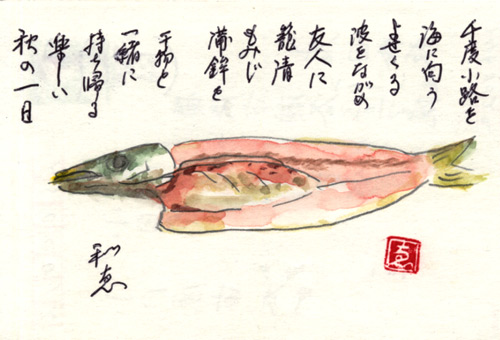 千度小路を
海に向う
よせくる
波をながめ
友人に
籠清
もみじ
蒲鉾を
干物と
一緒に
持ち帰る
楽しい
秋の一日
和恵
恵